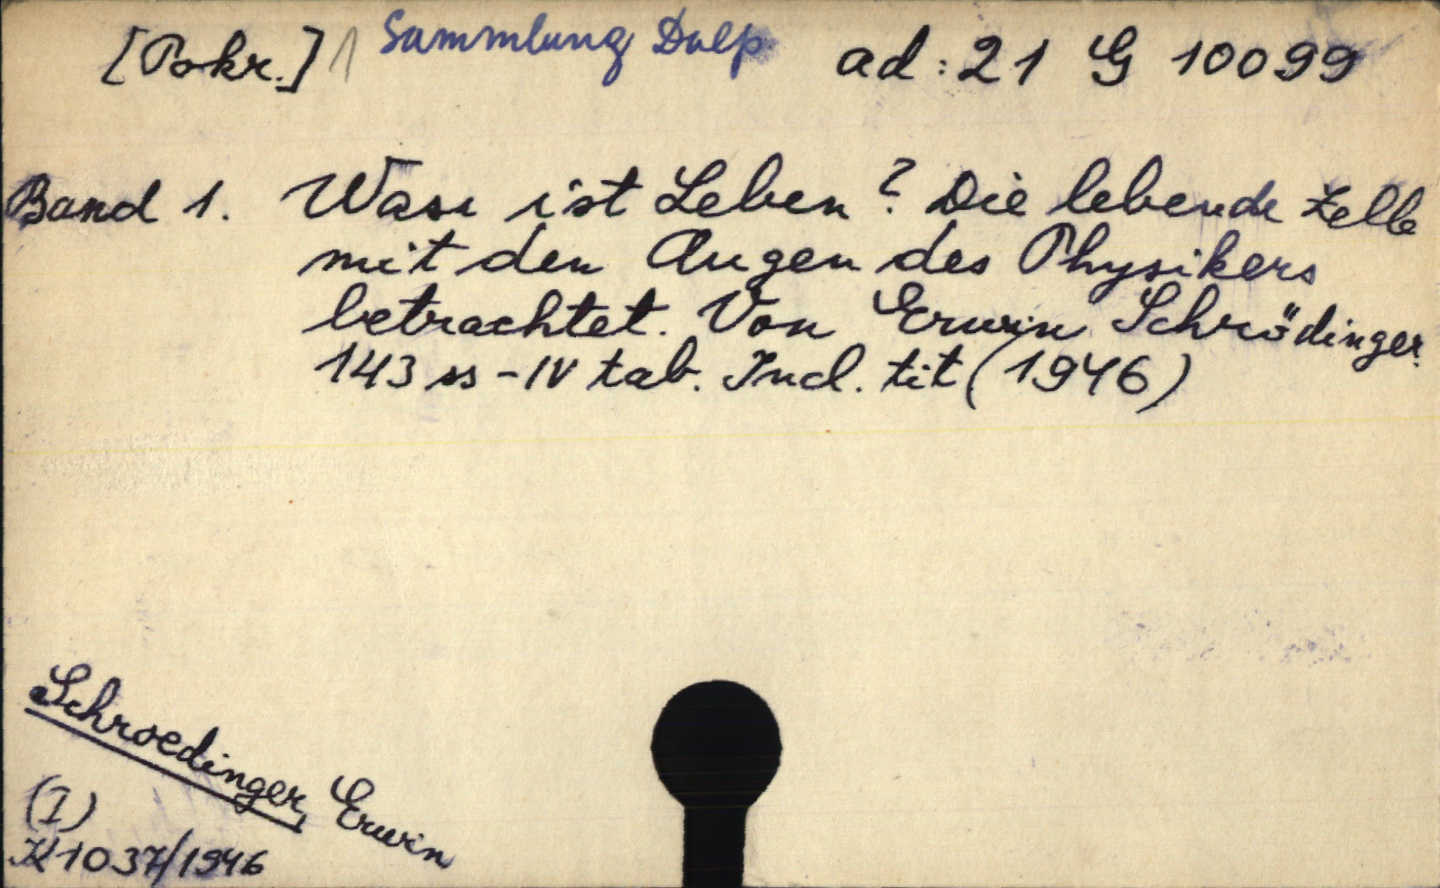 [Pokr.] 1 Sammlung Dalp ad: 21 G 10099
Band 1. Was ist Leben? Die lebende Zelle
mit den Augen des Physikers
betrachtet. Von Erwin Schrödinger.
143 ss - IV tab. Incl. tit (1946)
Schroedinger, Erwin
(I)
K 1037/1946